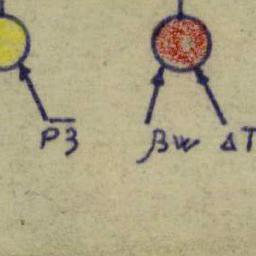 P3 βw ΔT